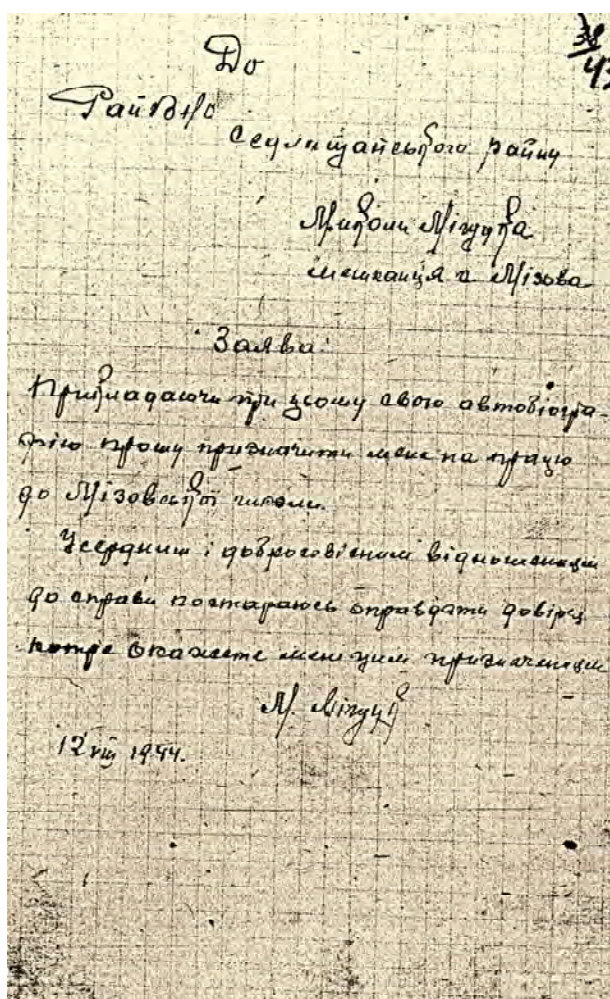 38
43
До
РайВНО
Седлищайського райну
Миколи Міщука
мешканця с Мізова
Заява:
Прикладаючи при цьому свою автобіогра-
фію прошу призначити мене на працю
до Мізовської школи.
Усердним і добросовісним відношенням
до справи постараюсь оправдати довірє
котре окажете мені цим призначенням
М. Міщук
12 VIII 1944.